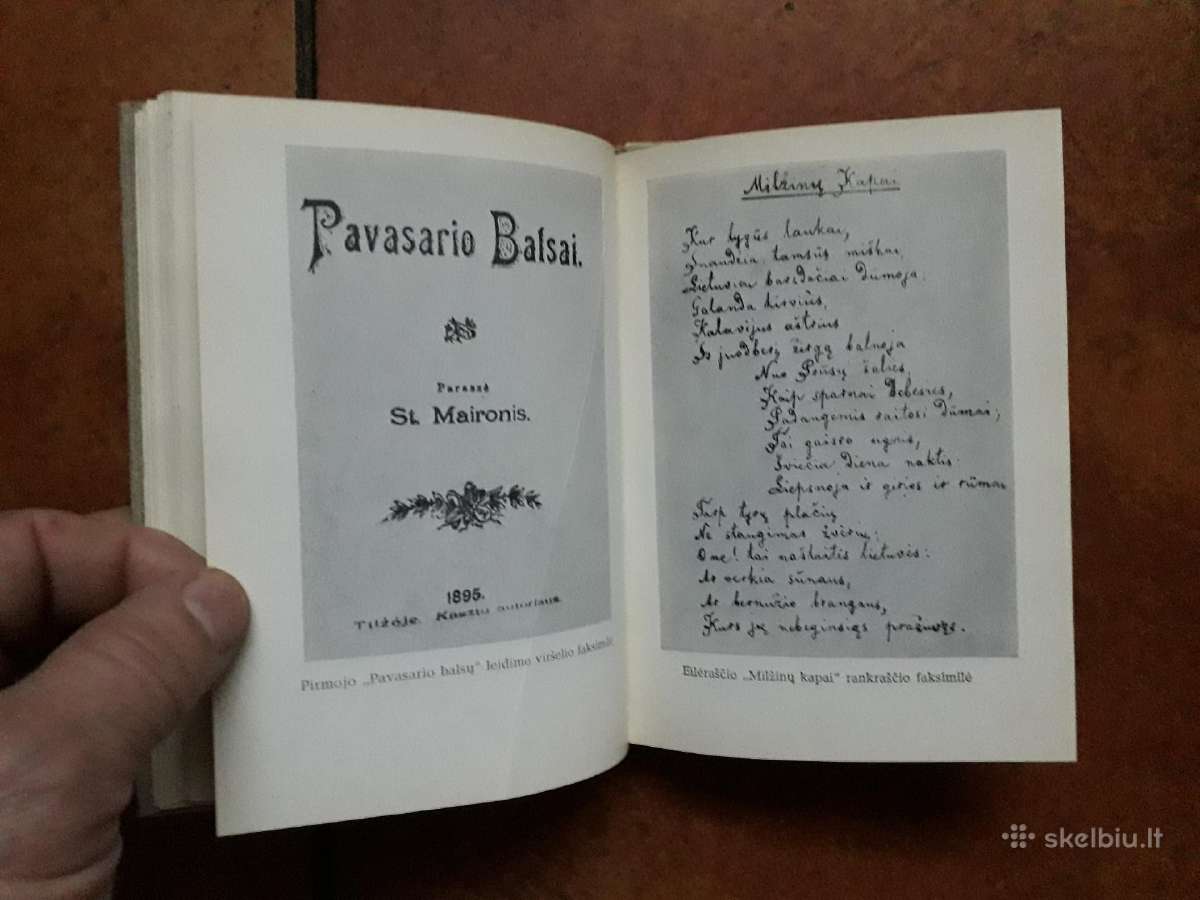 Pavasario Balsai.
Paraszė
St. Maironis.
1895.
Tilžėje. Kasztu autoriaus
Pirmojo „Pavasario balsų“ leidimo viršelio faksimilė
Milžinų Kapai
Kur lygūs laukai,
Snaudžia tamsūs miškai,
Lietuviai barzdočiai dūmoja:
Galanda kirvius,
Kalavijus aštrius
Ir juodbėrį žirgą balnoja
Nuo Prūsų šalies,
Kaip sparnai debesies,
Padangėmis raitosi dūmai;
Tai gaisro ugnis,
Šviečia diena naktis:
Liepsnoja ir girios ir rūmai
Tarp tyrų plačių
Ne staugimas žvėrių:
One! tai našlaitės lietuvės:
Ar verkia sūnaus,
Ar bernužio brangaus,
Kurs ję nebeginsięs pražuvęs.
Eilėraščio „Milžinų kapai“ rankraščio faksimilė
skelbiu.lt